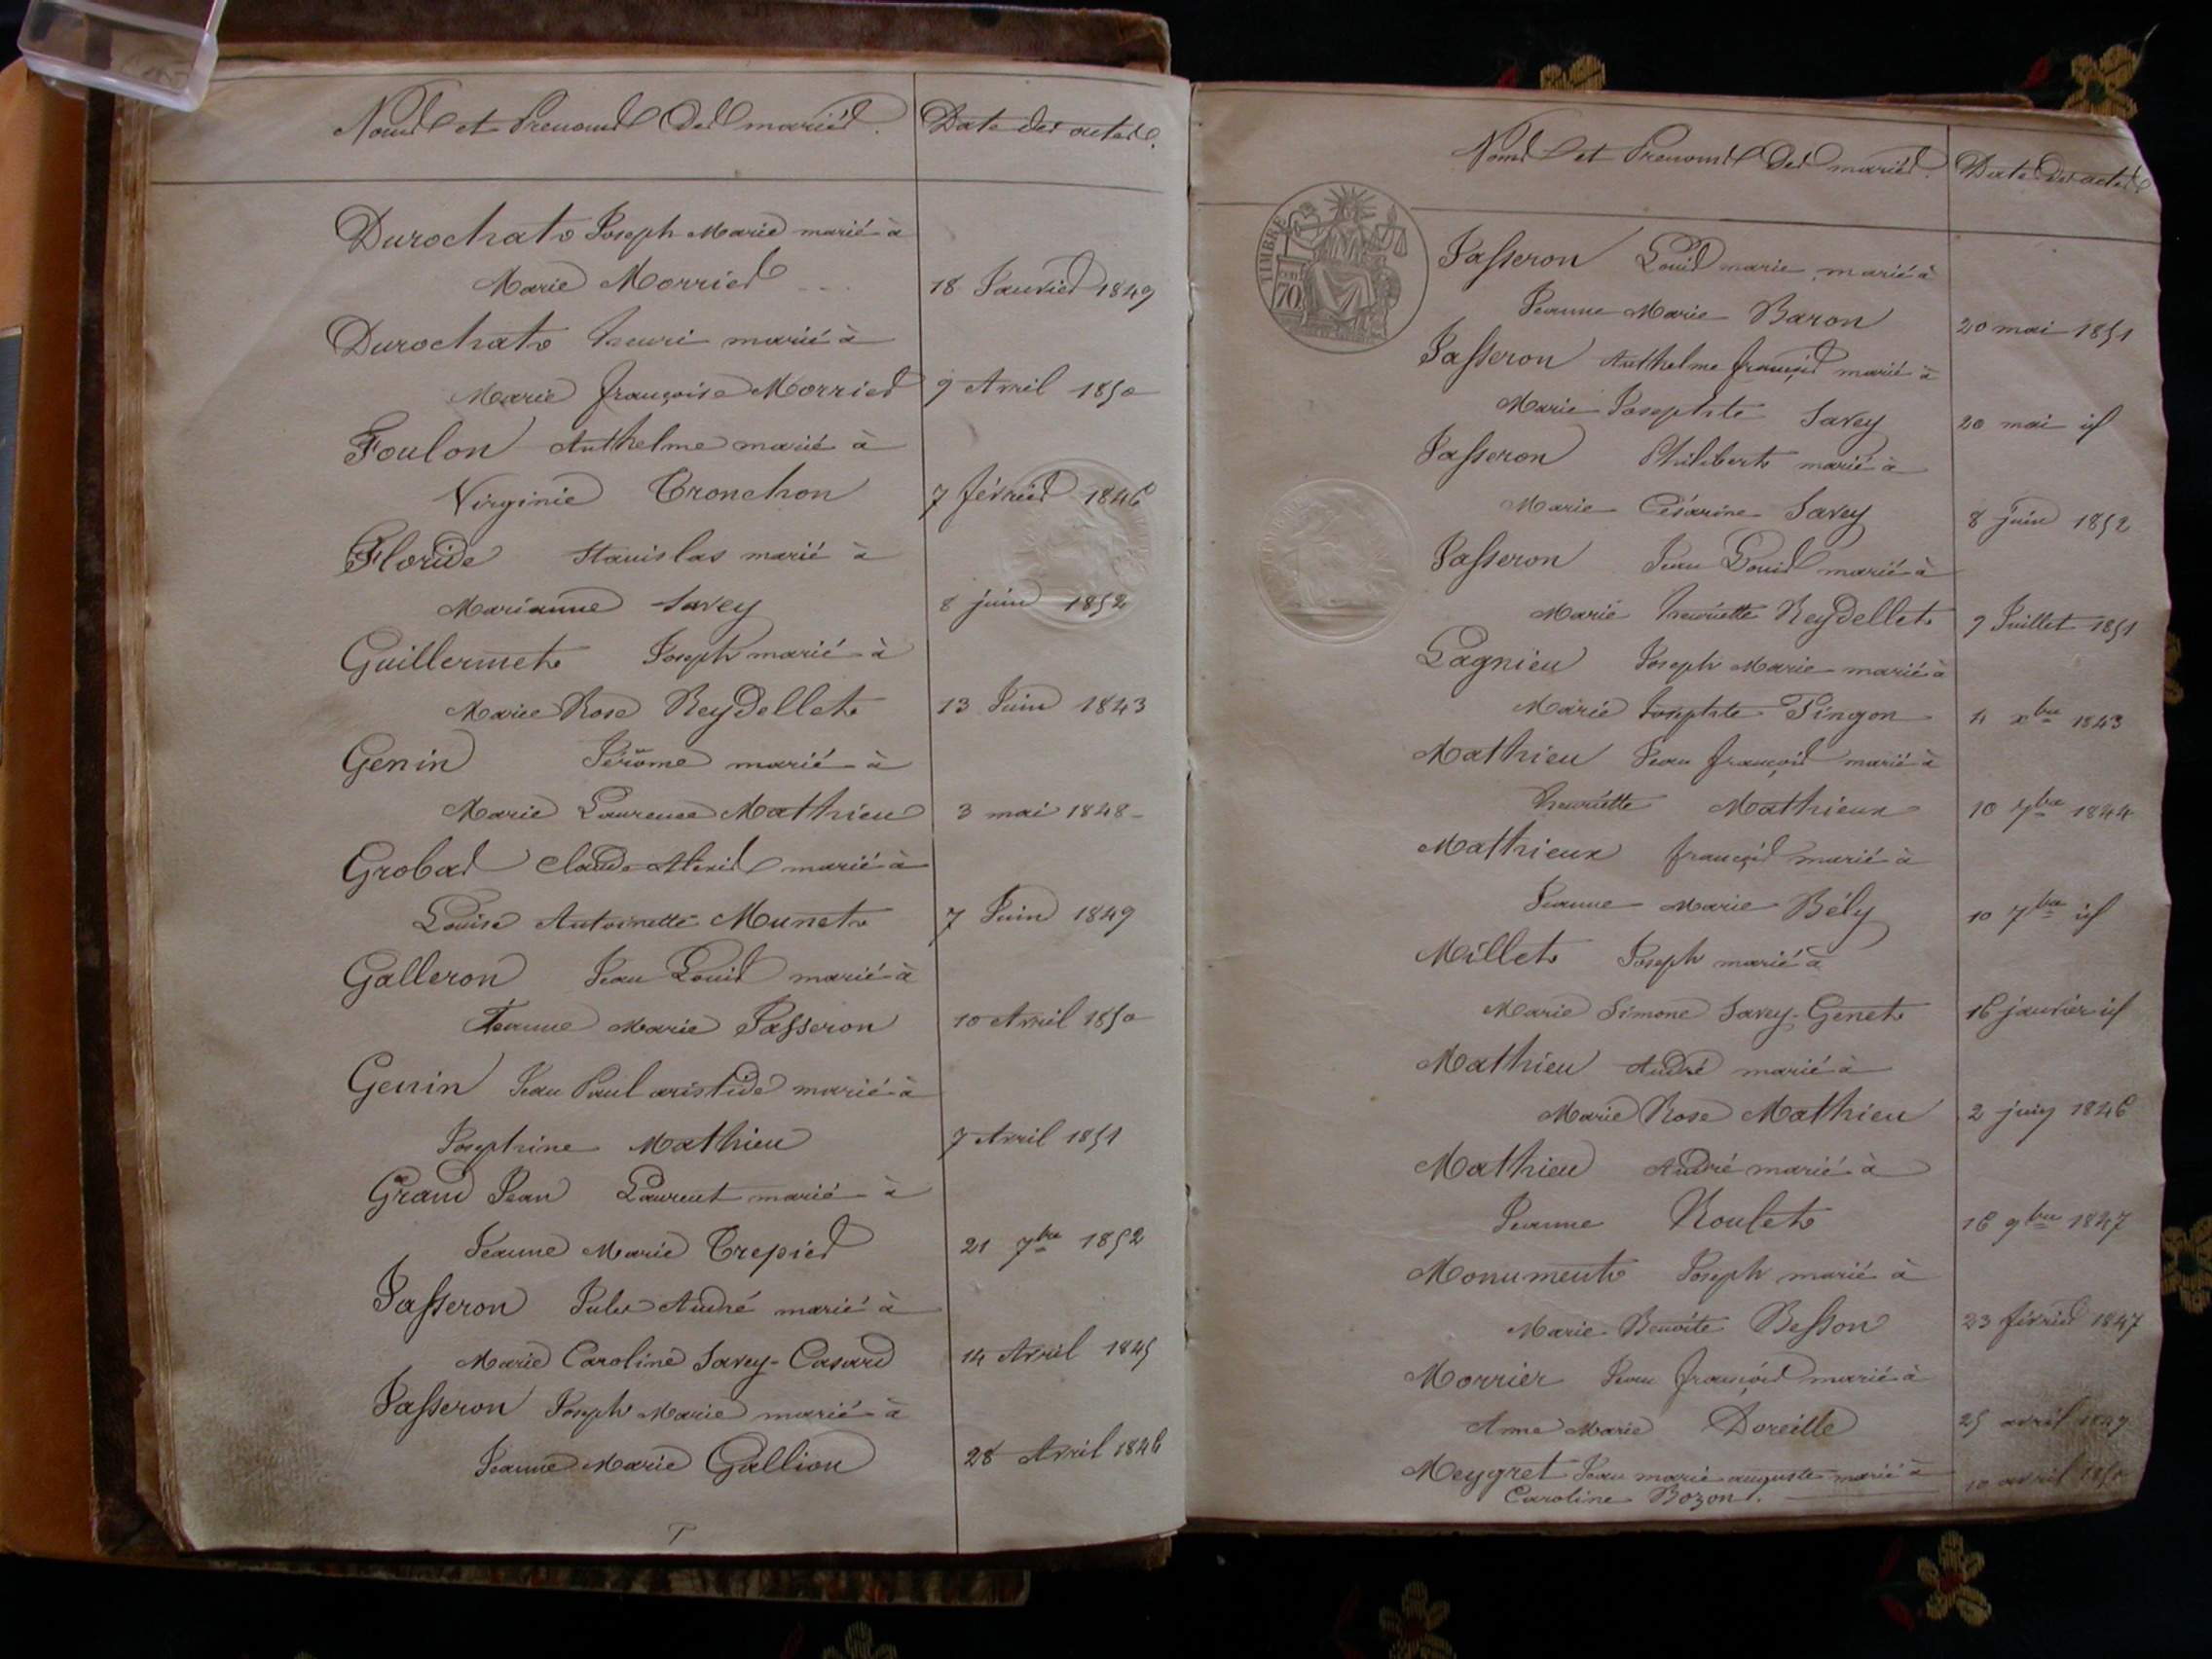 Noms et Prenoms des mariés. Date des actes.
Durochat Joseph Marie marié à
Marie Morrier 18 Janvier 1849
Durochat henri marié à
Marie françoise Morrier 9 Avril 1850
Foulon Anthelme marié à
Virginie Tronchon 7 février 1846
Floride Stanislas marié à
Marianne Savey 8 juin 1852
Guillermet Joseph marié à
Marie Rose Reydellet 13 Juin 1843
Genin Jérôme marié à
Marie Laurence Mathieu 3 mai 1848
Grobas Claude Alexis marié à
Louise Antoinette Munet 7 Juin 1849
Galleron Jean Louis marié à
Jeanne Marie Jasseron 10 Avril 1850
Genin Jean Paul aristide marié à
Josephine Mathieu 7 Avril 1851
Grand Jean Laurent marié à
Jeanne Marie Trepier 21 7bre 1852
Jasseron Jules André marié à
Marie Caroline Savey-Casard 14 Avril 1845
Jasseron Joseph Marie marié à
Jeanne Marie Gallion 28 Avril 1846
Noms et Prenoms des mariés. Date des actes
TIMBRE
70
Jasseron Louis marie marié à
Jeanne Marie Baron 20 mai 1851
Jasseron Anthelme françois marié à
Marie Josephte Savey 20 mai id
Jasseron Philibert marié à
Marie Césarine Savey 8 juin 1852
Jasseron Jean Louis marié à
Marie henriette Reydellet 9 Juillet 1851
Lagnieu Joseph Marie marié à
Marie Josephte Pingon 4 xbre 1843
Mathieu Jean françois marié à
henriette Mathieux 10 7bre 1844
Mathieux françois marié à
Jeanne Marie Bély 10 7bre id
Millet Joseph marié à
Marie Simone Savey-Genet 16 janvier id
Mathieu André marié à
Marie Rose Mathieu 2 juin 1846
Mathieu André marié à
Jeanne Roulet 16 9bre 1847
Monument Joseph marié à
Marie Benoite Besson 23 février 1847
Morrier Jean françois marié à
Anne Marie Doreille 25 avril 1849
Meygret Jean marie auguste marié à
Caroline Bozon. 10 avril